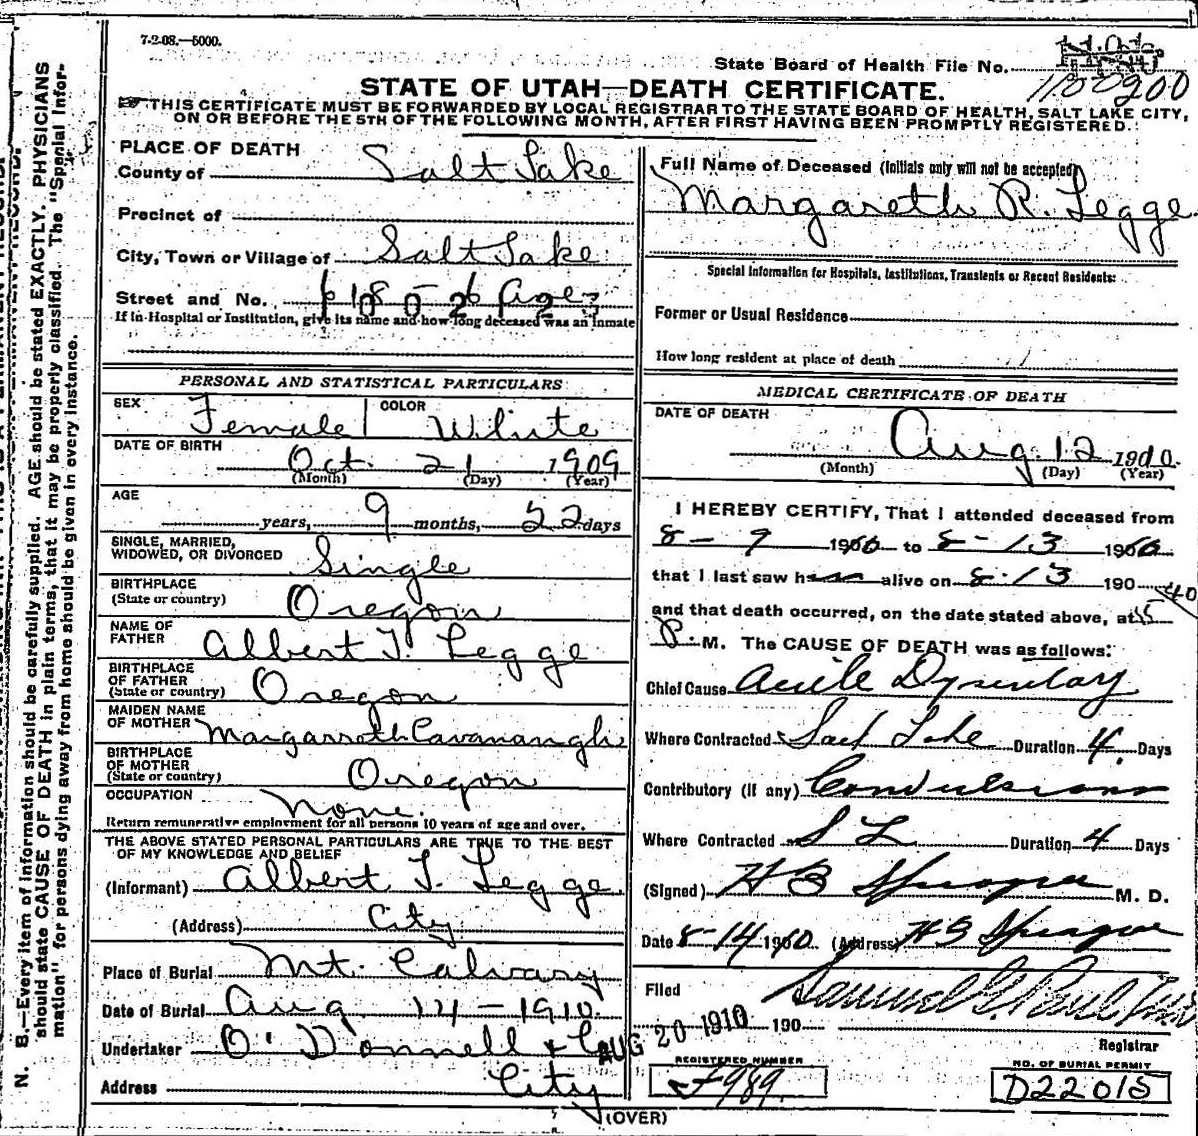 7-2-08.—5000.
State Board of Health File No.
1100900
STATE OF UTAH—DEATH CERTIFICATE.
THIS CERTIFICATE MUST BE FORWARDED BY LOCAL REGISTRAR TO THE STATE BOARD OF HEALTH, SALT LAKE CITY,
ON OR BEFORE THE 5TH OF THE FOLLOWING MONTH, AFTER FIRST HAVING BEEN PROMPTLY REGISTERED.
PLACE OF DEATH
County of Salt Lake
Precinct of
City, Town or Village of Salt Lake
Street and No.
If in Hospital or Institution, give its name and how long deceased was an inmate
PERSONAL AND STATISTICAL PARTICULARS
SEX Female COLOR White
DATE OF BIRTH
Oct. 21 1909
(Month) (Day) (Year)
AGE
years, 9 months, 22 days
SINGLE, MARRIED,
WIDOWED, OR DIVORCED Single
BIRTHPLACE
(State or country) Oregon
NAME OF
FATHER Albert T. Legge
BIRTHPLACE
OF FATHER
(State or country) Oregon
MAIDEN NAME
OF MOTHER Margarreth Cavanangh
BIRTHPLACE
OF MOTHER
(State or country) Oregon
OCCUPATION None.
Return remunerative employment for all persons 10 years of age and over.
THE ABOVE STATED PERSONAL PARTICULARS ARE TRUE TO THE BEST
OF MY KNOWLEDGE AND BELIEF
(Informant) Albert T. Legge
(Address) City
Place of Burial Mt. Calvary
Date of Burial Aug 14-1910.
Undertaker O'Donnell & Co
Address City
(OVER)
Full Name of Deceased (Initials only will not be accepted)
Margareth R. Legge
Special Information for Hospitals, Institutions, Transients or Recent Residents:
Former or Usual Residence
How long resident at place of death
MEDICAL CERTIFICATE OF DEATH
DATE OF DEATH
Aug. 12 1910.
(Month) (Day) (Year)
I HEREBY CERTIFY, That I attended deceased from
8-9 1910 to 8-13 1910
that I last saw her alive on 8-13 190
and that death occurred, on the date stated above, at 5 40
P. M. The CAUSE OF DEATH was as follows:
Chief Cause Acute Dysentary
Where Contracted Salt Lake Duration 4 Days
Contributory (if any) Convulsions
Where Contracted S L Duration 4 Days
(Signed) H B Sprague M. D.
Date 8-14 1910. (Address) H B Sprague
Filed AUG 20 1910 190 Samuel G. Paul
Registrar
REGISTERED NUMBER
F989
NO. OF BURIAL PERMIT
D22015
N. B.—Every item of information should be carefully supplied. AGE should be stated EXACTLY. PHYSICIANS
should state CAUSE OF DEATH in plain terms, that it may be properly classified. The "Special Infor-
mation" for persons dying away from home should be given in every instance.